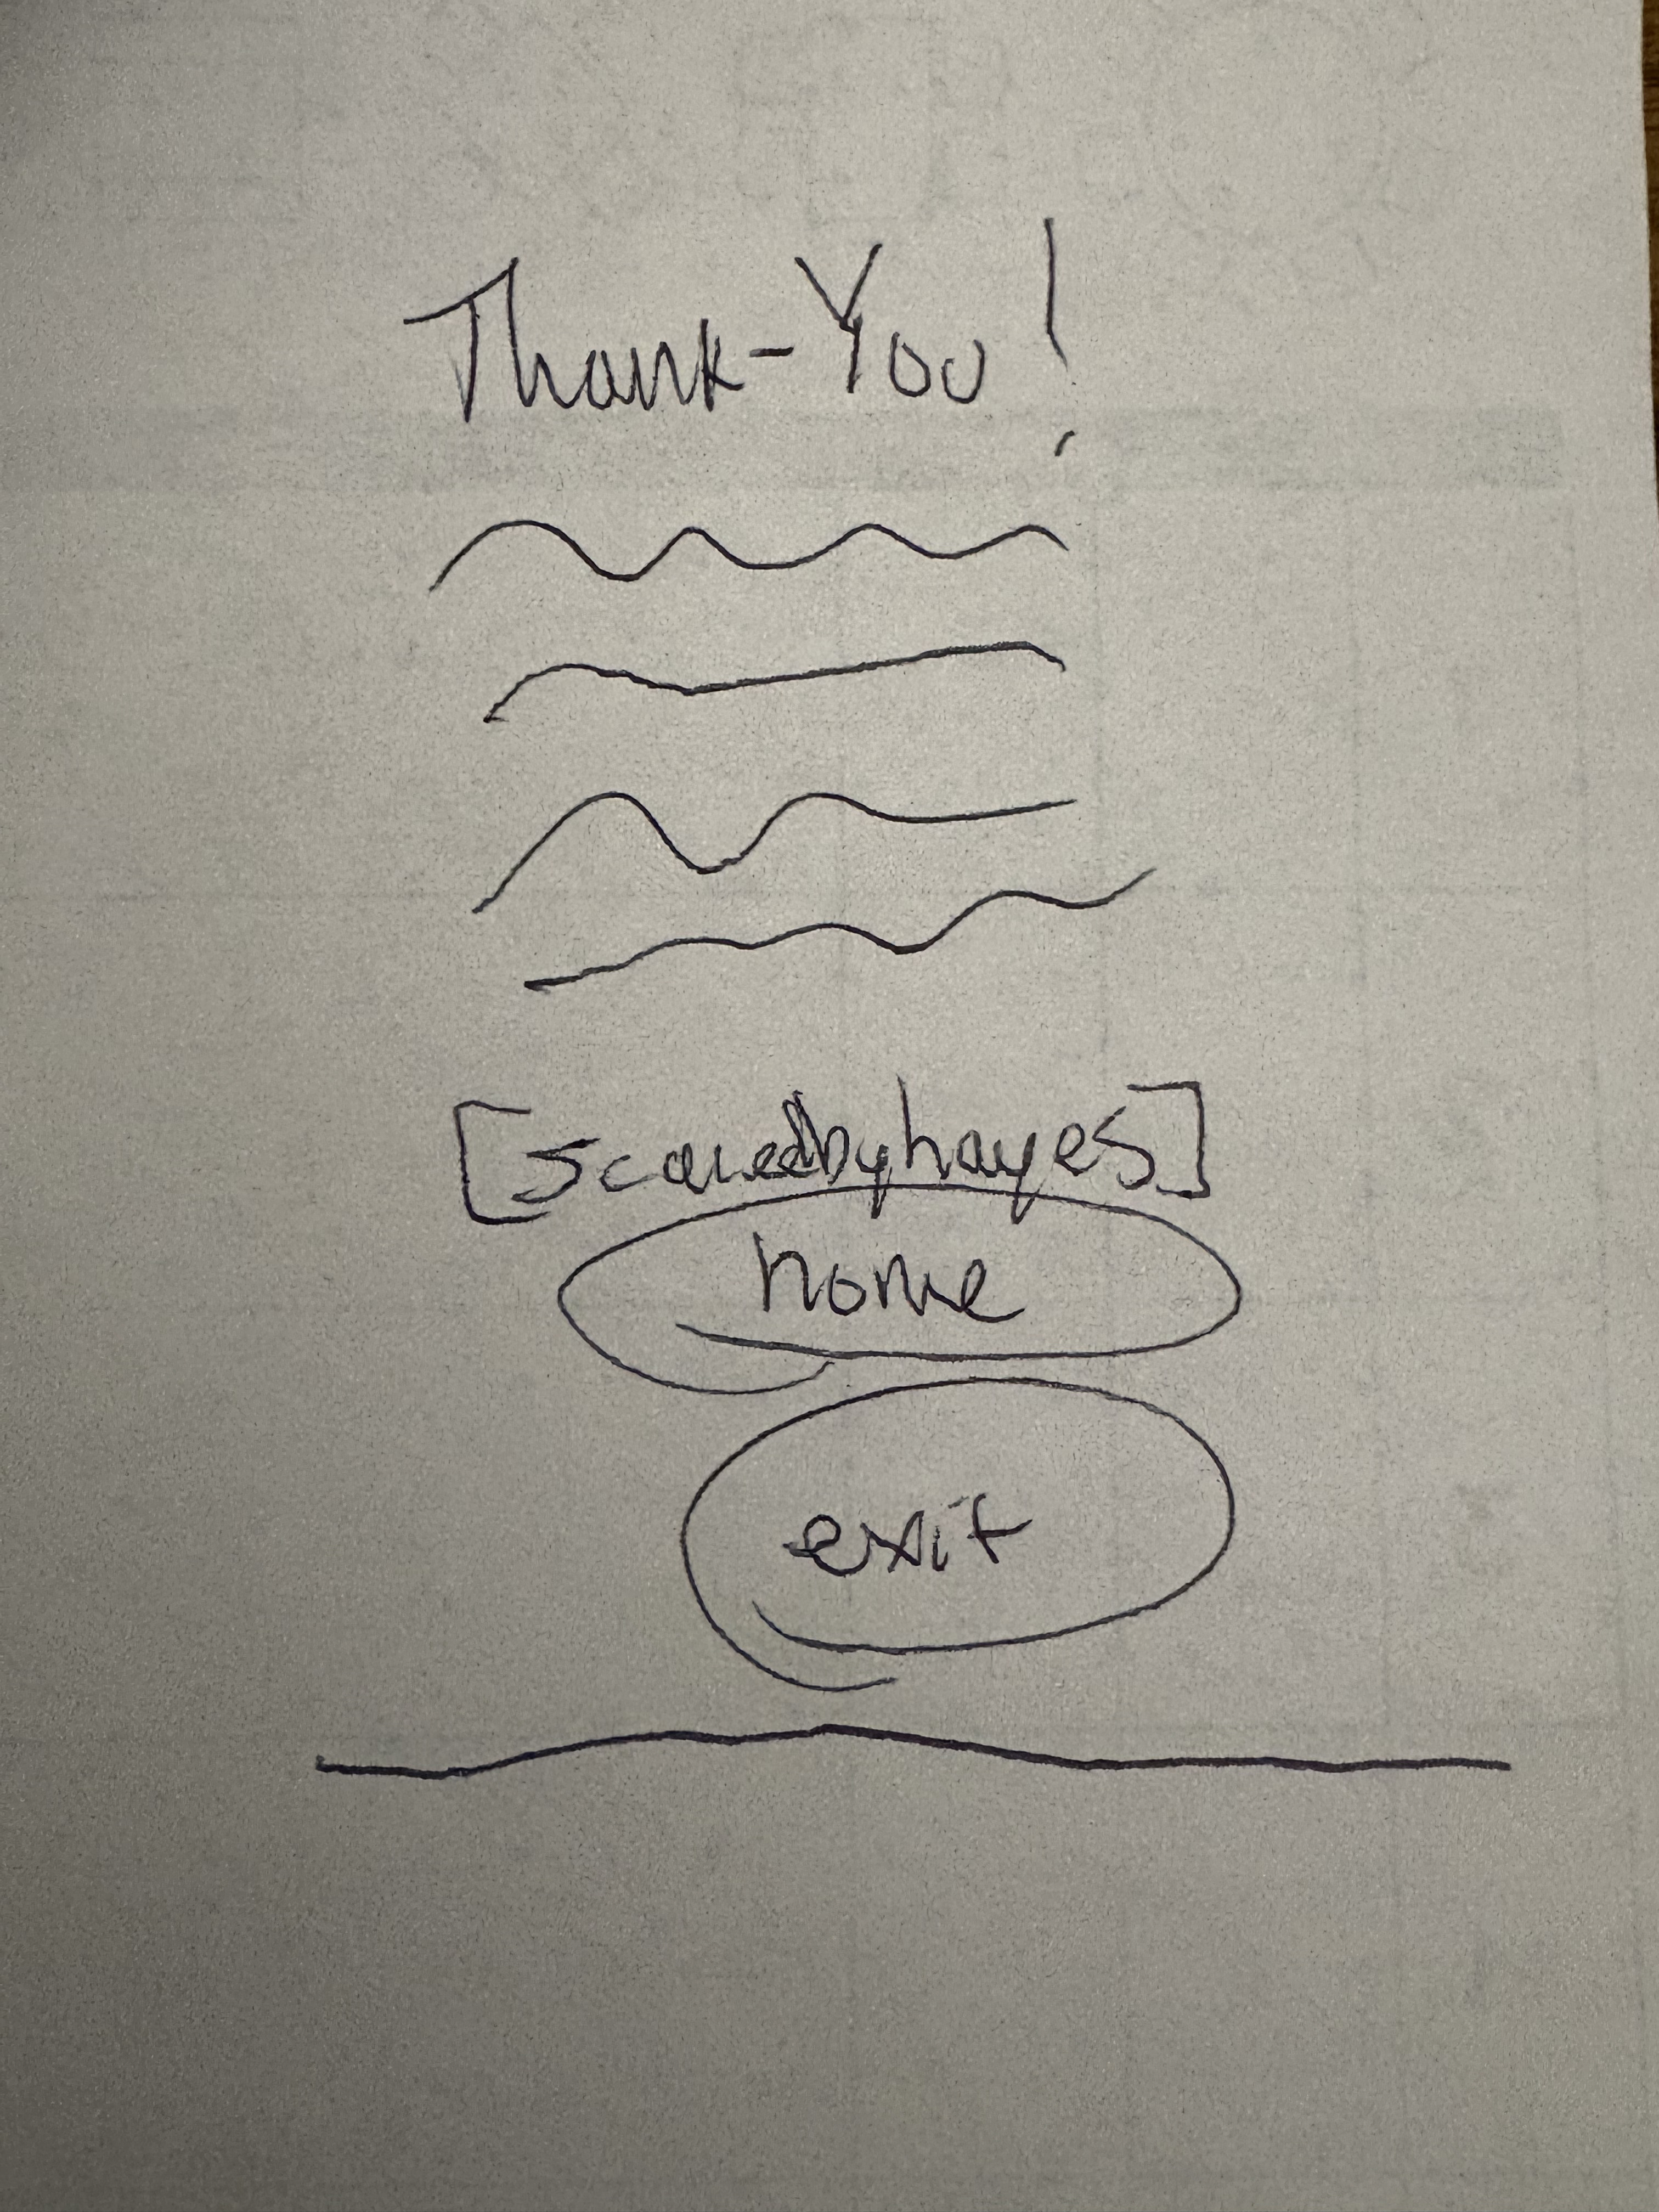 Thank-You!
[scaredbyhayes]
home
exit